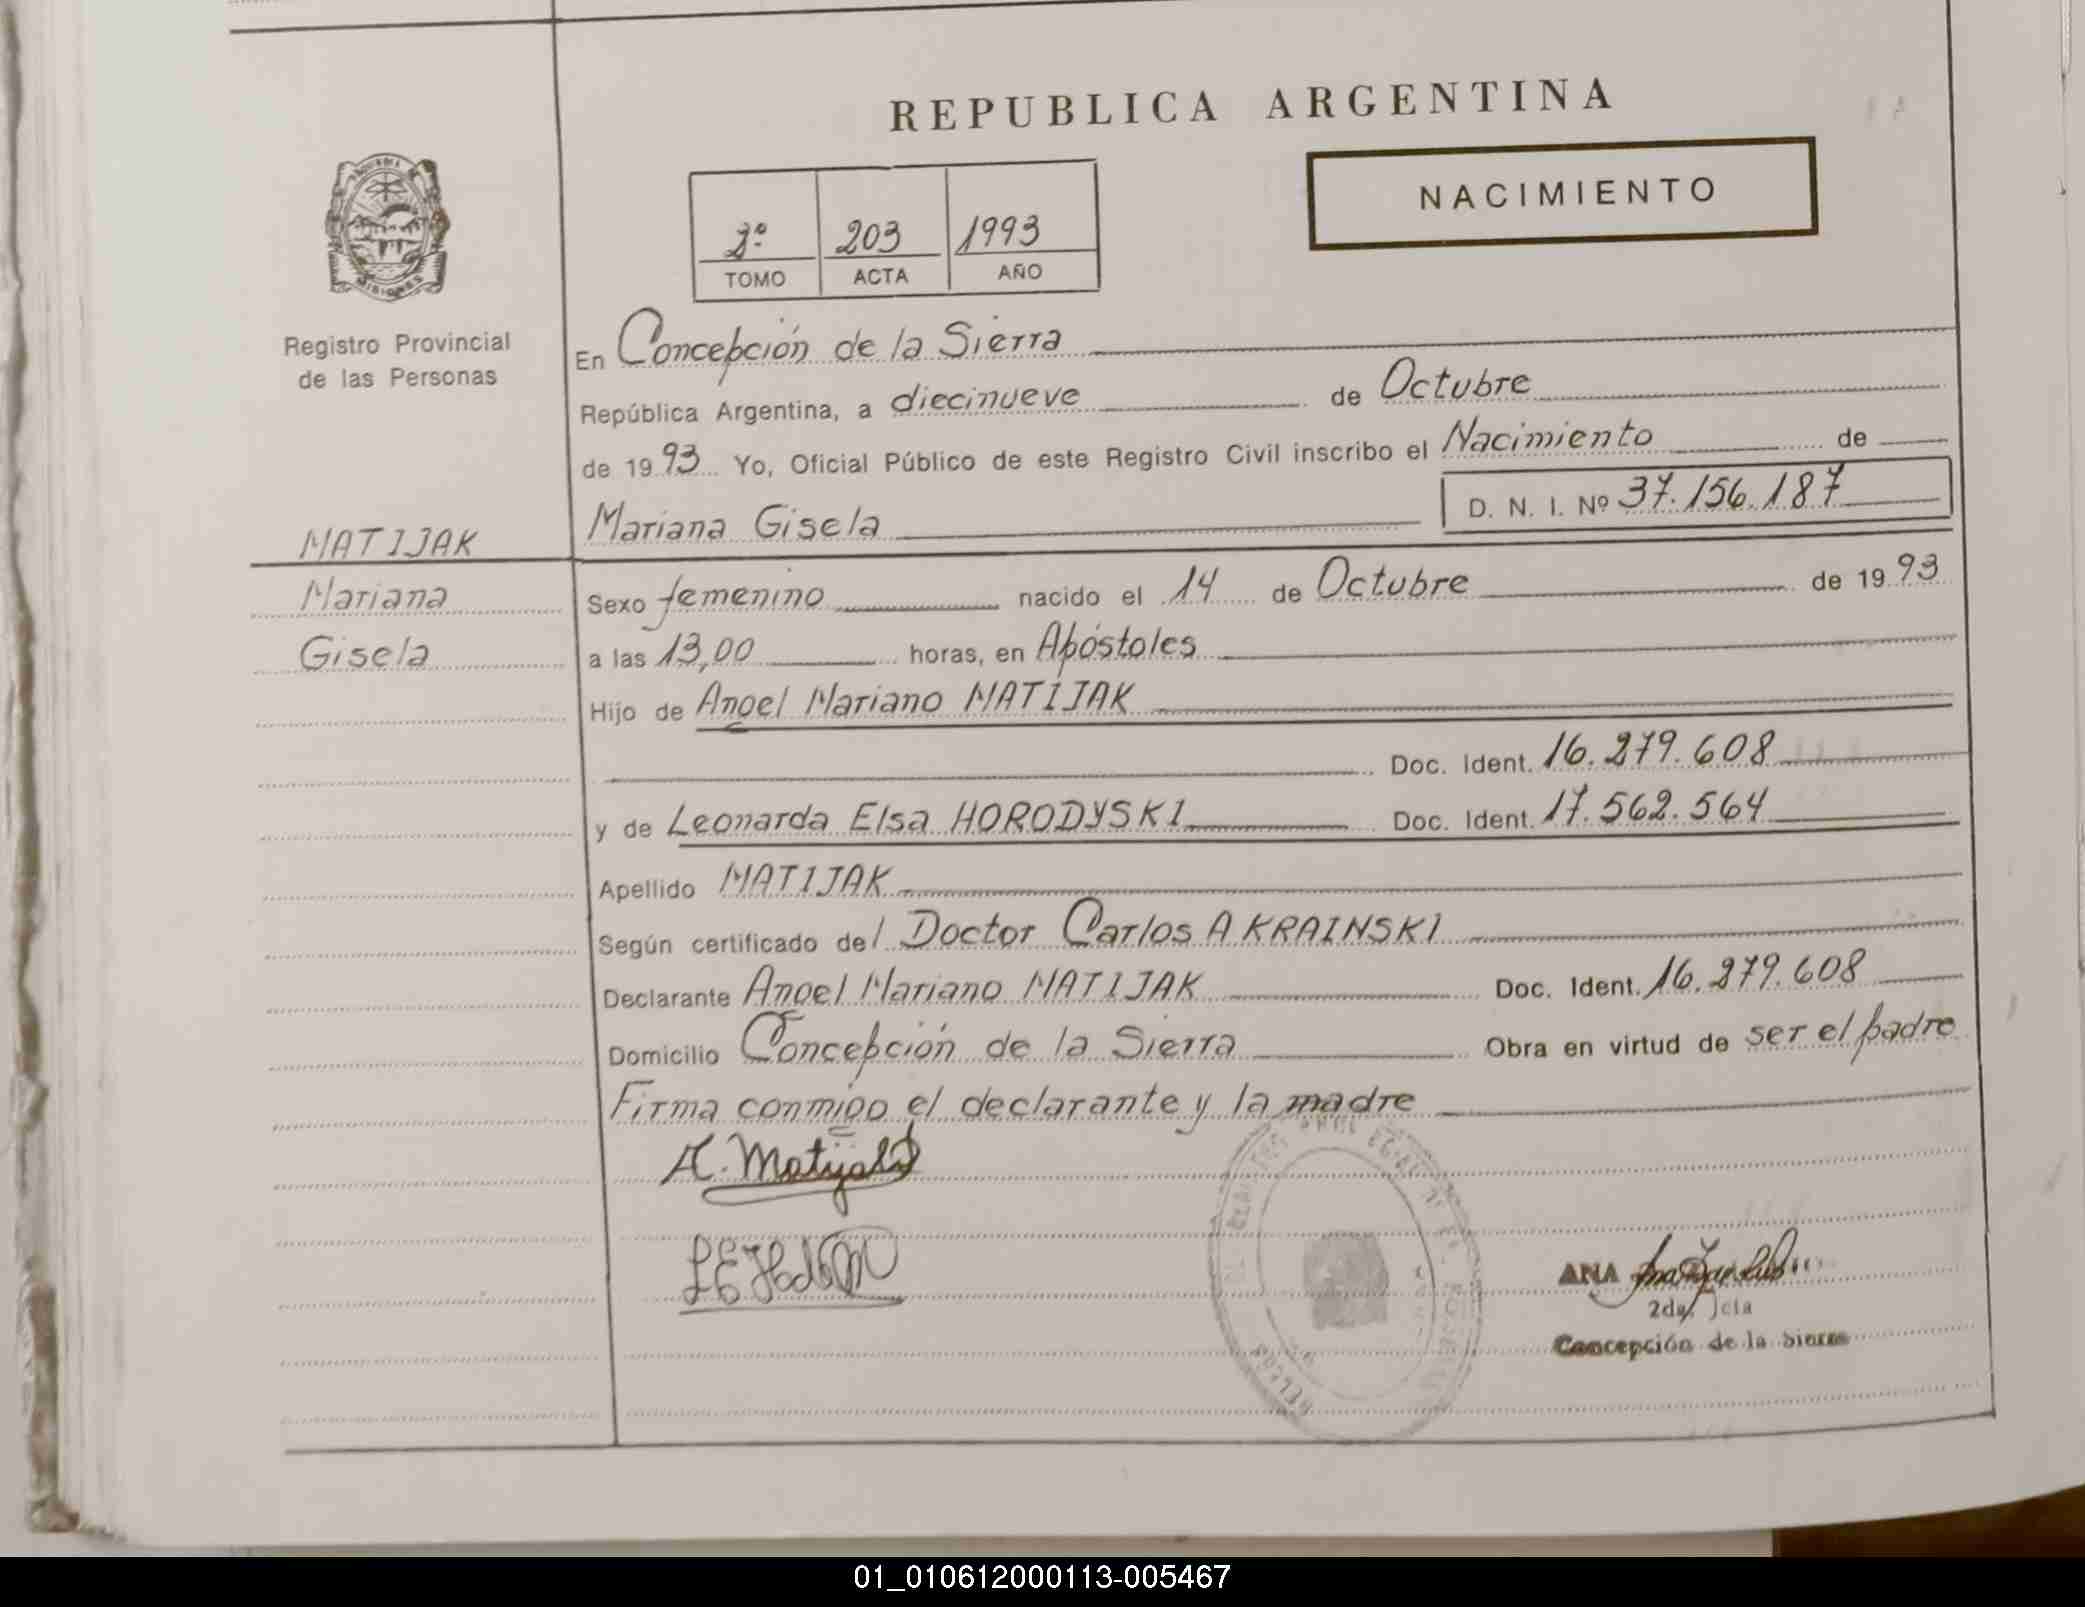 REPUBLICA ARGENTINA
NACIMIENTO
2º 203 1993
TOMO ACTA AÑO
MISIONES
Registro Provincial
de las Personas
En Concepción de la Sierra
República Argentina, a diecinueve de Octubre
de 1993 Yo, Oficial Público de este Registro Civil inscribo el Nacimiento de
Mariana Gisela D. N. I. Nº 37.156.187
MATIJAK
Mariana
Gisela
Sexo femenino nacido el 14 de Octubre de 1993
a las 13,00 horas, en Apóstoles
Hijo de Angel Mariano MATIJAK
Doc. Ident. 16.279.608
y de Leonarda Elsa HORODYSKI Doc. Ident. 17.562.564
Apellido MATIJAK
Según certificado del Doctor Carlos A KRAINSKI
Declarante Angel Mariano MATIJAK Doc. Ident. 16.279.608
Domicilio Concepción de la Sierra Obra en virtud de ser el padre
Firma conmigo el declarante y la madre
A. Matijak
ANA
Concepción de la Sierra
01_010612000113-005467